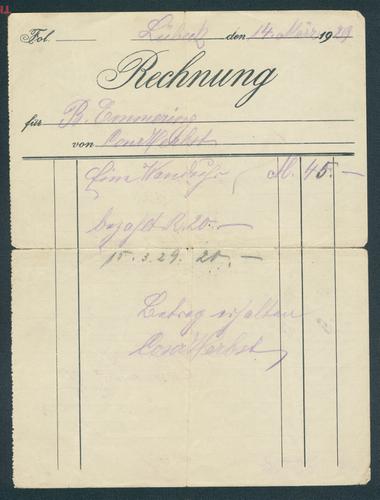 Fol. Lübeck den 14. März 1929
Rechnung
für R. Emmering
von Cona Herbst
Eine Wanduhr M. 45.—
bezahlt R. 20.—
15.3.29. 20.—
Betrag erhalten
Cona Herbst